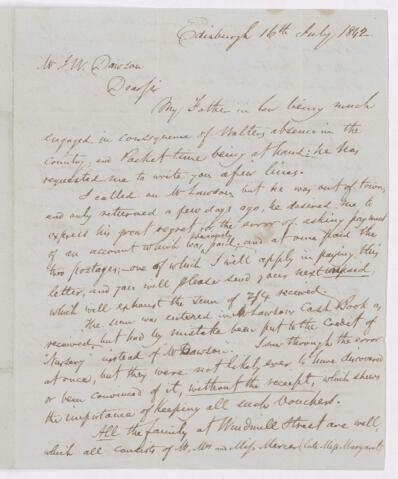 Edinburgh 16th July 1842
Mr J. W. Dawson
Dear Sir
My Father in law being much
engaged in consequence of Walter's absence in the
Country, and Packet time being at hand; he has
requested me to write you a few lines.
I called on Mr Lawson, but he was out of town,
and only returned a few days ago, he desired me to
express his great regret for the error of asking payment
of an account which was previously paid; and at once paid the
two postages;—one of which I will apply in paying this
letter, and you will please send your next unpaid,
which will exhaust the sum of 2/4 received.
The sum was entered in Mr Lawson's Cash Book as
received, but had by mistake been put to the Credit of
"Nursery" instead of Mr Dawson. I saw through the error
at once, but they were not likely ever to have discovered
or been convinced of it, without the receipt, which shews
the importance of keeping all such vouchers.
All the family at Windmill Street are well,
which all consists of Mr, Mrs and Miss Mercer (late Miss Margaret